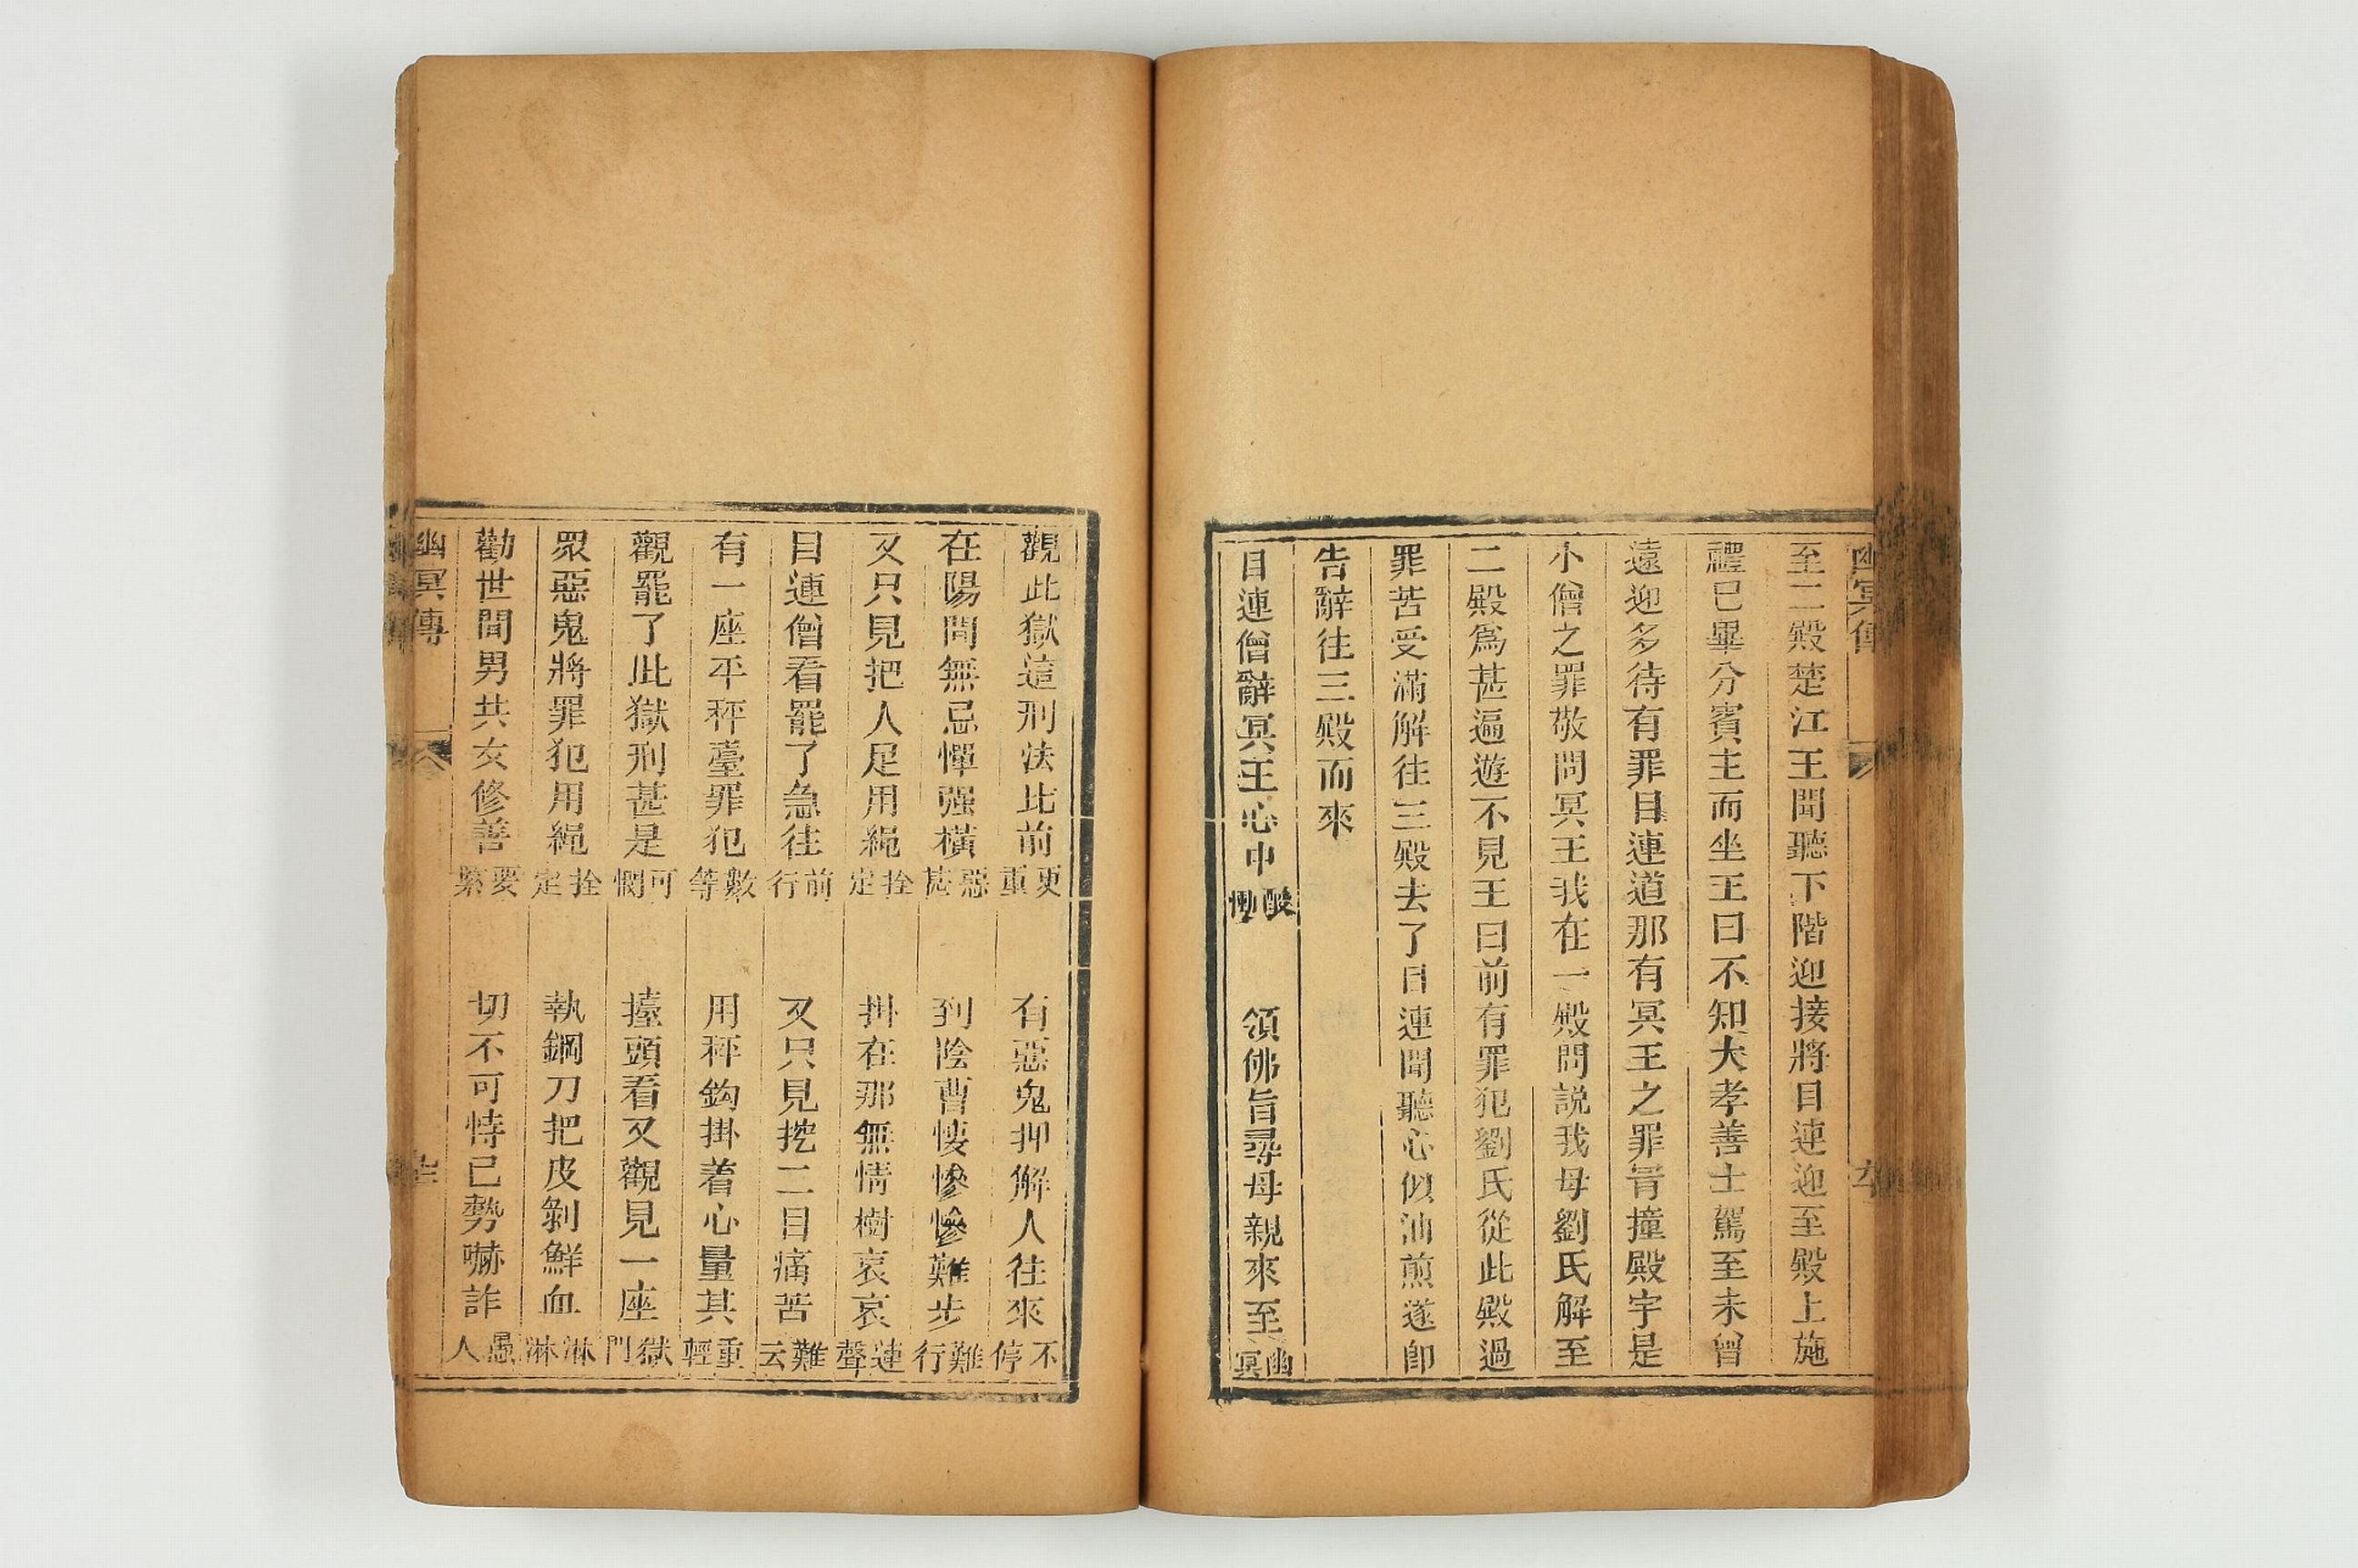 幽冥傳
至二殿楚江王聞聽下階迎接將目連迎至殿上施
禮已畢分賓主而坐王曰不知大孝善士駕至未曾
遠迎多待有罪目連道那有冥王之罪
撞殿宇是
小僧之罪敬問冥王我在一殿問説我母劉氏解至
二殿爲甚遍遊不見王曰前有罪犯劉氏從此殿過
罪苦受滿解往三殿去了目連聞聽心似油煎遂卽
告辭往三殿而來
目連僧辭冥王心中酸慟　領佛旨尋母親來至幽冥
觀此獄這刑法比前更重　有惡鬼押解人往來不停
在陽間無忌憚强橫惡甚　到陰曹悽慘慘難步難行
又只見把人足用繩拴定　掛在那無情樹哀哀連聲
目連僧看罷了急往前行　又只見挖二目痛苦難云
有一座平秤臺罪犯數等　用秤鈎掛着心量其重輕
觀罷了此獄刑甚是可憫　擡頭看又觀見一座獄門
眾惡鬼將罪犯用繩拴定　執鋼刀把皮剝鮮血淋淋
勸世間男共女修善要緊　切不可恃己勢嚇詐愚人
幽冥傳